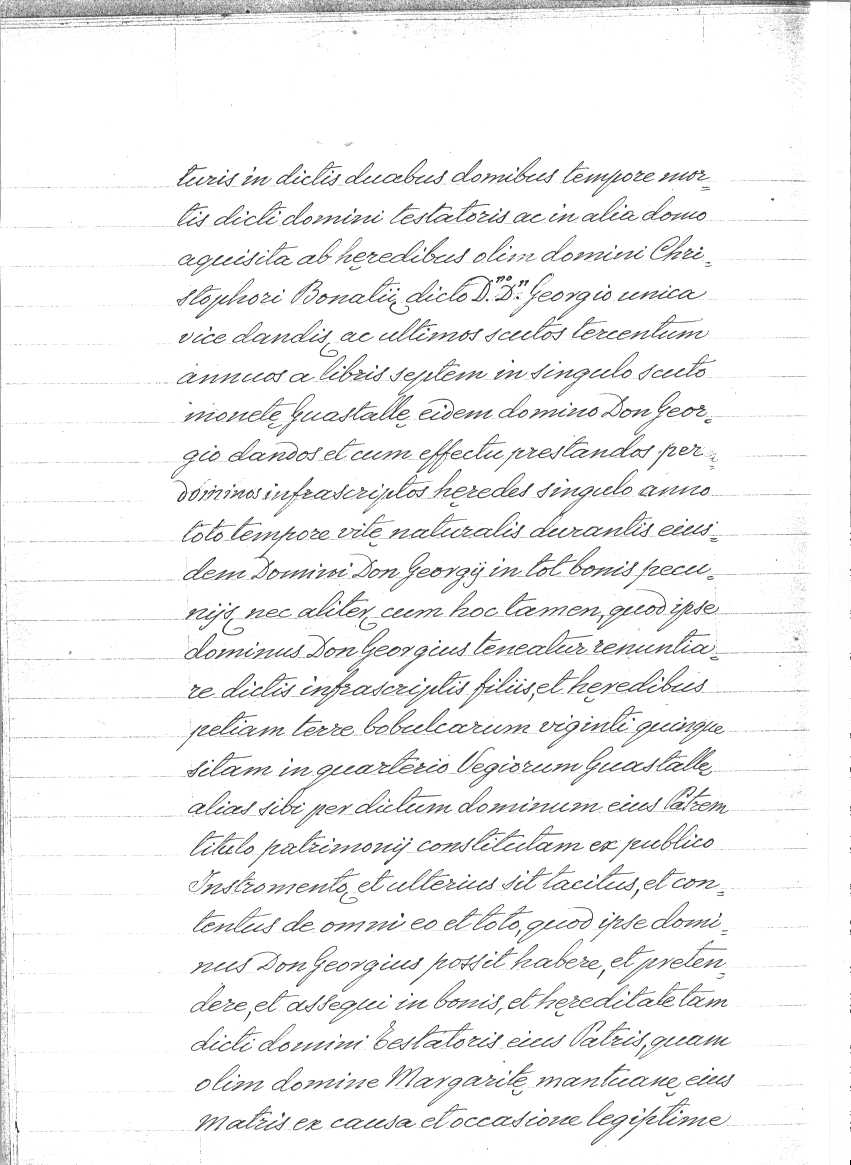 turis in dictis duabus domibus tempore mor=
tis dicti domini testatoris ac in alia domo
aquisita ab hęredibus olim domini Chri=
stophori Bonatii, dicto D.no D.n Georgio unica
vice dandis, ac ultimos scutos tercentum
annuos a libris septem in singulo scuto
monetę Guastallę eidem domino Don Geor=
gio dandos et cum effectu prestandos per
dominos infrascriptos hęredes singulo anno
toto tempore vitę naturalis durantis eius=
dem Domini Don Georgij in tot bonis pecu=
nijs, nec aliter, cum hoc tamen, quod ipse
dominus Don Georgius teneatur renuntia=
re dictis infrascriptis filiis, et hęredibus
petiam terre bobulcarum viginti quinque
sitam in quarterio Vegiorum Guastallę
alias sibi per dictum dominum eius Patrem
titulo patrimonij constitutam ex publico
Instromento, et ulterius sit tacitus, et con=
tentus de omni eo et toto, quod ipse domi=
nus Don Georgius possit habere, et preten=
dere, et assequi in bonis, et hęreditate tam
dicti domini Testatoris eius Patris, quam
olim domine Margaritę mantuanę eius
Matris ex causa et occasione legiptime